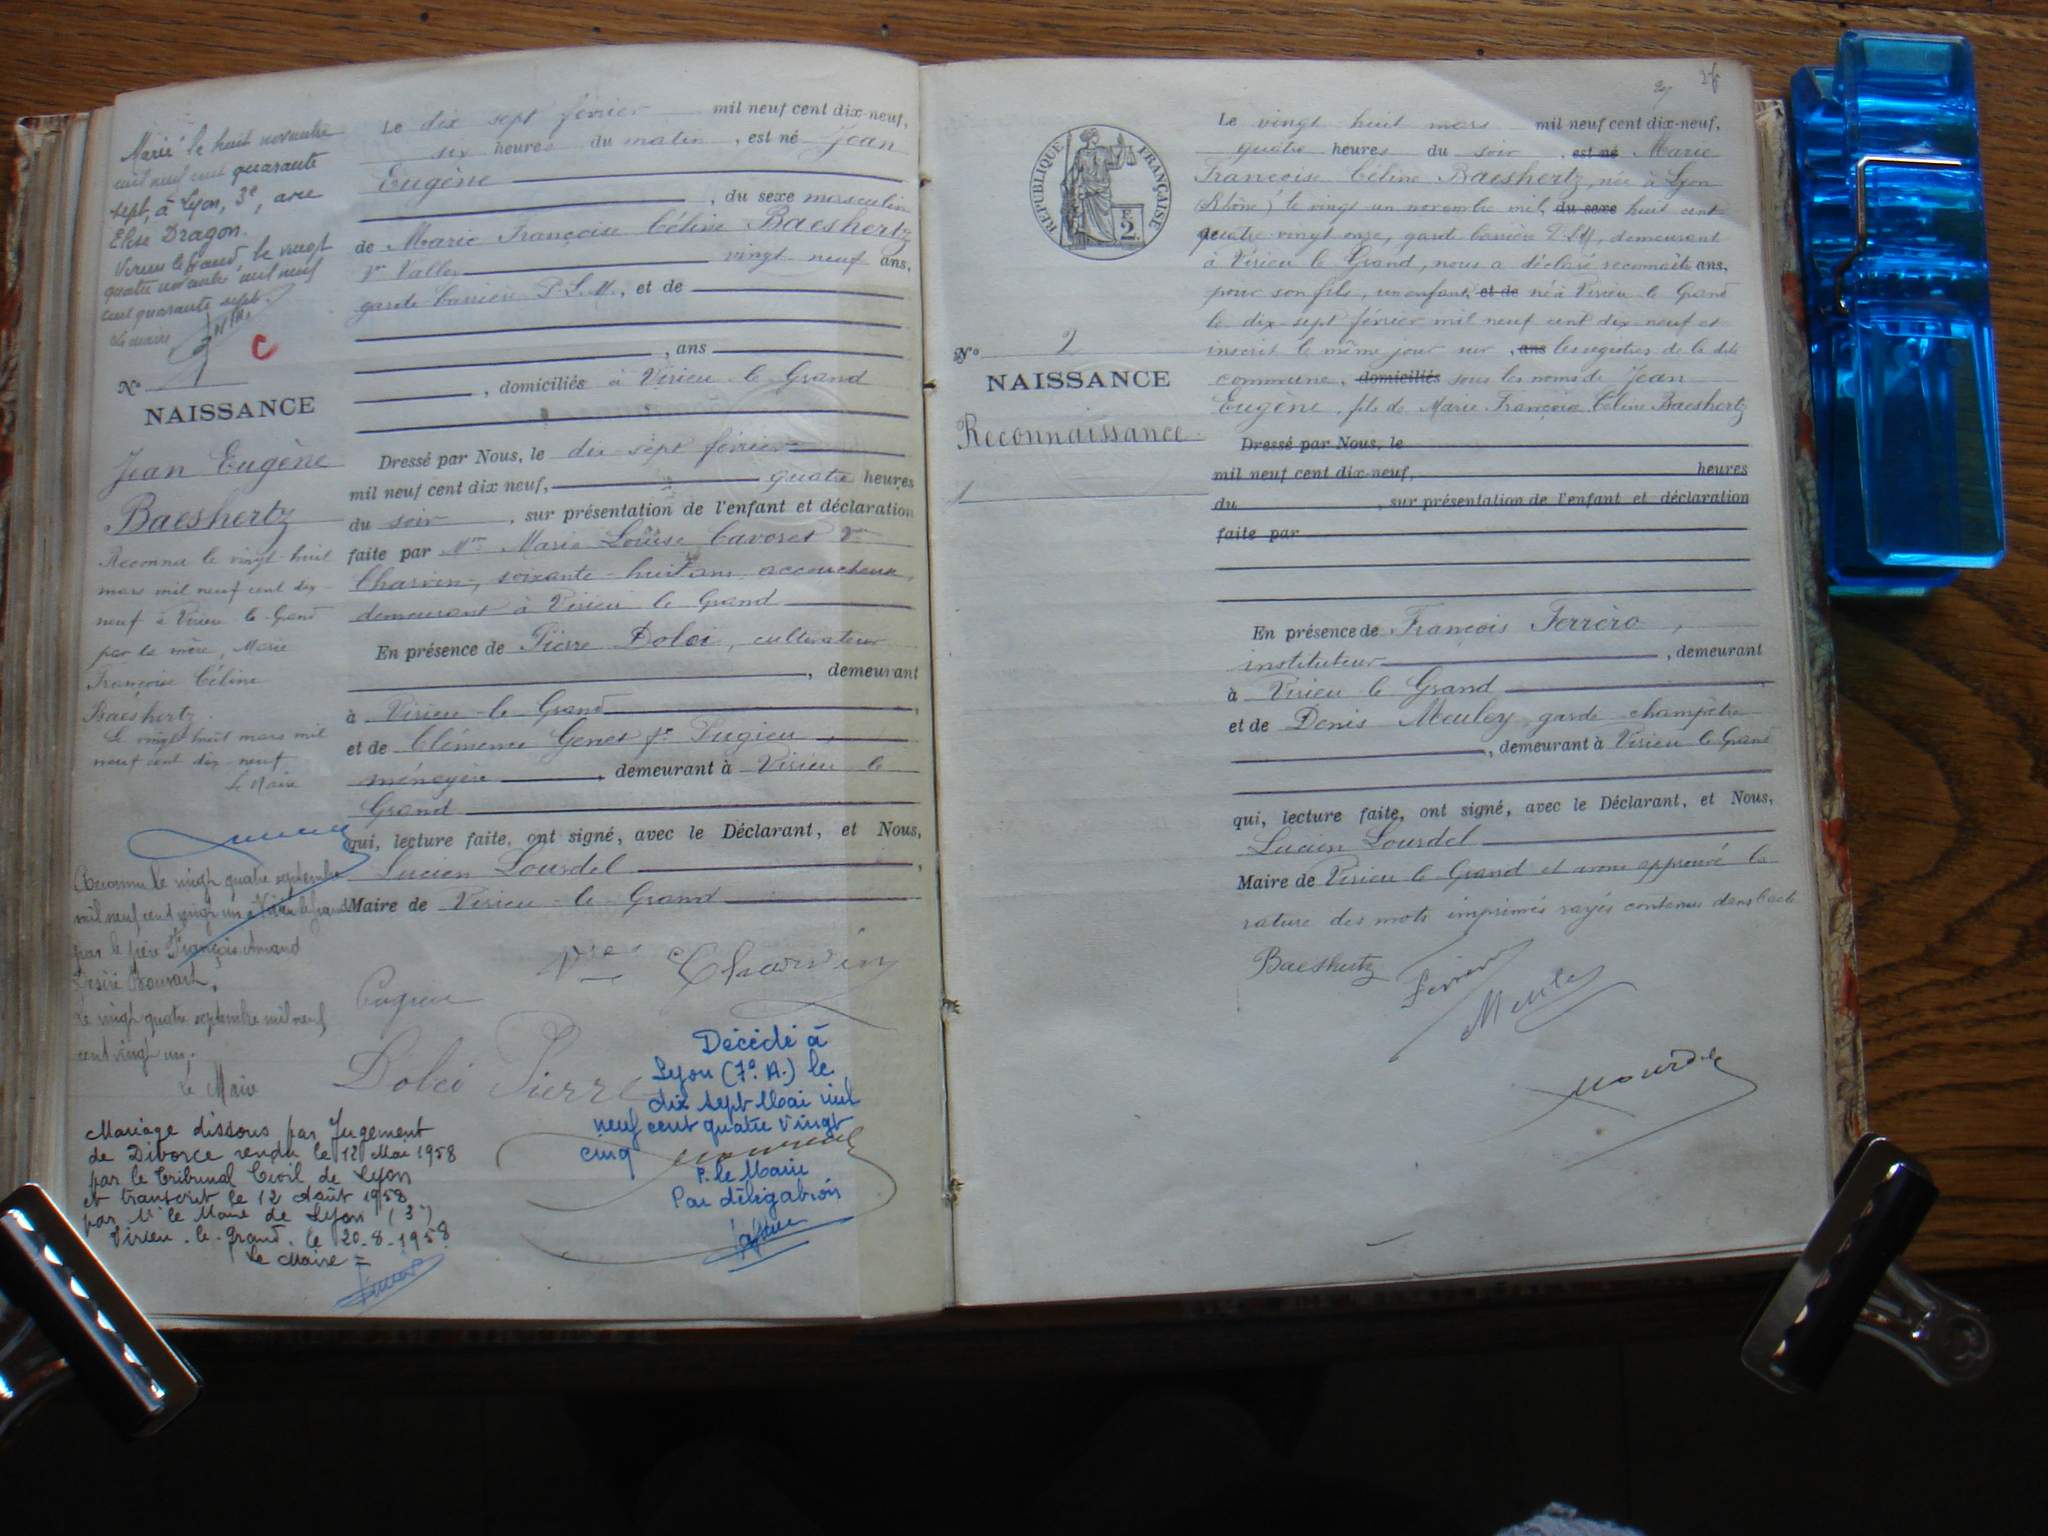 Marié le huit novembre
mil neuf cent quarante
sept, à Lyon, 3e, avec
Elise Dragon.
Virieu le Grand le vingt
quatre novembre mil neuf
cent quarante sept.
Le Maire
C
No
NAISSANCE
Jean Eugène
Baeshertz
Reconnu le vingt huit
mars mil neuf cent dix-
neuf à Virieu le Grand
par la mère, Marie
Françoise Céline
Baeshertz.
Le vingt huit mars mil
neuf cent dix-neuf
Le Maire
Reconnu le vingt quatre septembre
mil neuf cent vingt un à Virieu le Grand
par le père François Amand
Désiré
Le vingt quatre septembre mil neuf
cent vingt un.
Le Maire
Mariage dissous par Jugement
de Divorce rendu le 12 Mai 1958
par le Tribunal Civil de Lyon
et transcrit le 12 Août 1958
par Mr le Maire de Lyon (3e)
Virieu-le-Grand, le 20-8-1958
Le Maire =
Le dix sept février mil neuf cent dix-neuf,
six heures du matin, est né Jean
Eugène
, du sexe masculin
de Marie Françoise Céline Baeshertz
vingt neuf ans,
garde barrière P.L.M., et de
, ans
, domiciliés à Virieu le Grand
Dressé par Nous, le dix sept février
mil neuf cent dix neuf, quatre heures
du soir, sur présentation de l'enfant et déclaration
faite par Me Marie Louise Cavoret Ve
Charvin, soixante-huit ans, accoucheuse,
demeurant à Virieu le Grand
En présence de Pierre Dolci, cultivateur
, demeurant
à Virieu-le-Grand,
et de Clémence Genet fe Pugieu,
ménagère, demeurant à Virieu le
Grand
qui, lecture faite, ont signé, avec le Déclarant, et Nous,
Lucien Lourdel,
Maire de Virieu-le-Grand
Vve Charvin
Pugieu
Dolci Pierre
Décédé à
Lyon (7e A.) le
dix sept Mai mil
neuf cent quatre vingt
cinq
P. le Maire
Par délégation
27 26
RÉPUBLIQUE FRANÇAISE
2
No 2
NAISSANCE
Reconnaissance
Le vingt huit mars mil neuf cent dix-neuf,
quatre heures du soir, est né Marie
Francoise Céline Baeshertz, née à Lyon
(Rhône) le vingt un novembre mil, du sexe huit cent
quatre-vingt onze, garde barrière P.L.M, demeurant
à Virieu le Grand, nous a déclaré reconnaître ans,
pour son fils, un enfant, et de né à Virieu le Grand
le dix-sept février mil neuf cent dix-neuf et
inscrit le même jour sur, ans les registres de la dite
commune, domiciliés sous les noms de Jean
Eugène, fils de Marie Françoise Céline Baeshertz
Dressé par Nous, le
mil neuf cent dix-neuf, heures
du, sur présentation de l'enfant et déclaration
faite par
En présence de François Ferréro,
instituteur, demeurant
à Virieu le Grand
et de Denis Meuley, garde champêtre
, demeurant à Virieu le Grand
qui, lecture faite, ont signé, avec le Déclarant, et Nous,
Lucien Lourdel
Maire de Virieu le Grand et avons approuvé la
rature des mots imprimés rayés contenus dans l'acte
Baeshertz
Meuley
Lourdel